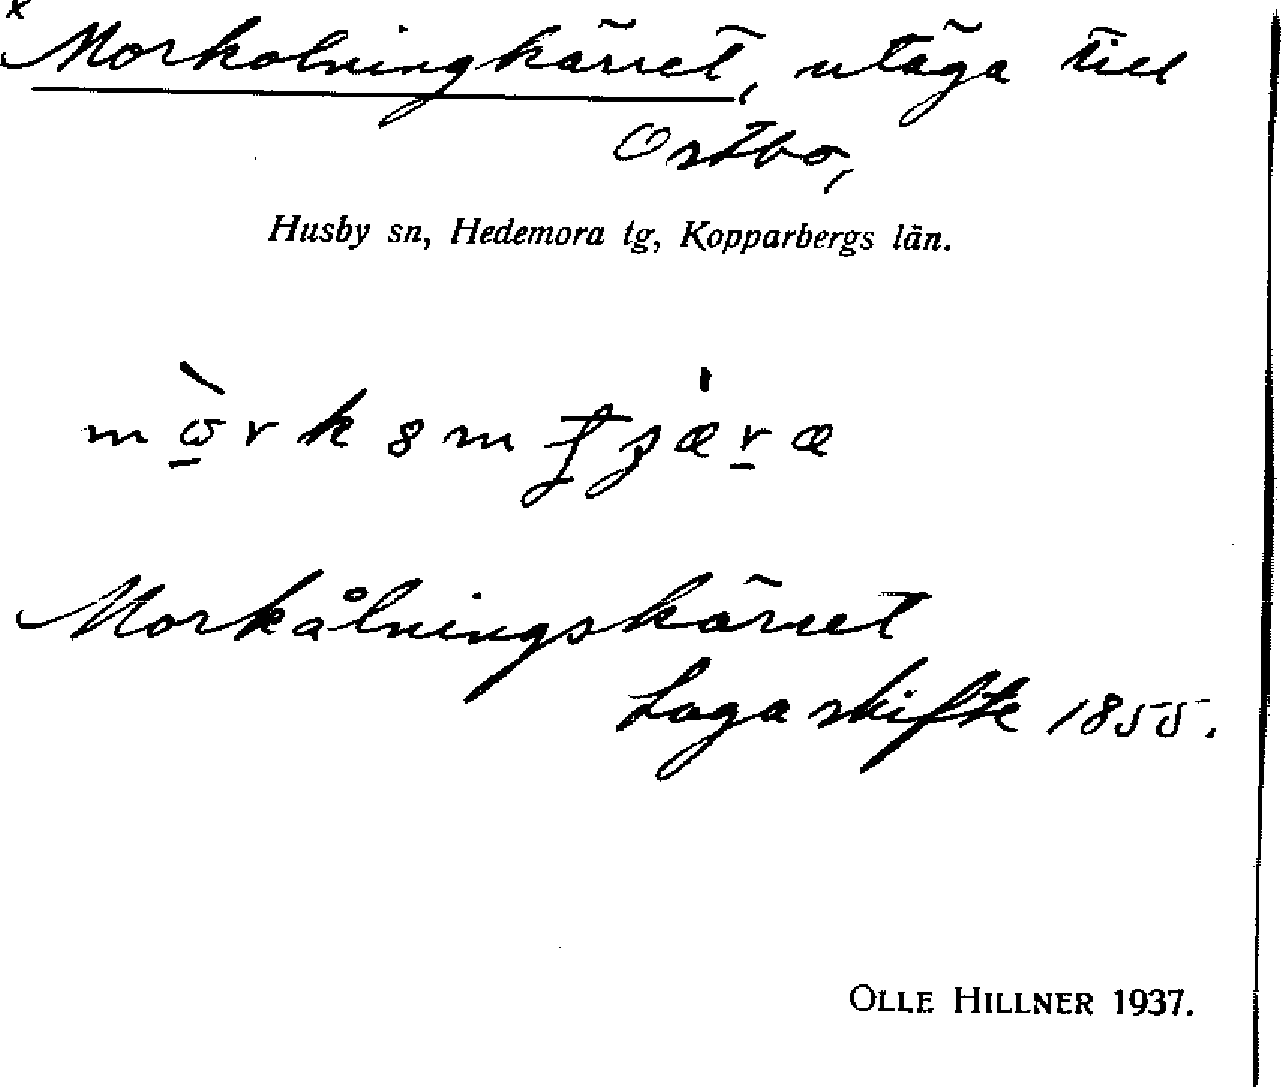 x
Morkolningkärret, utäga till
Ostbo,
Husby sn, Hedemora tg, Kopparbergs län.
Morkålningskärret
Laga skifte 1855.
OLLE HILLNER 1937.